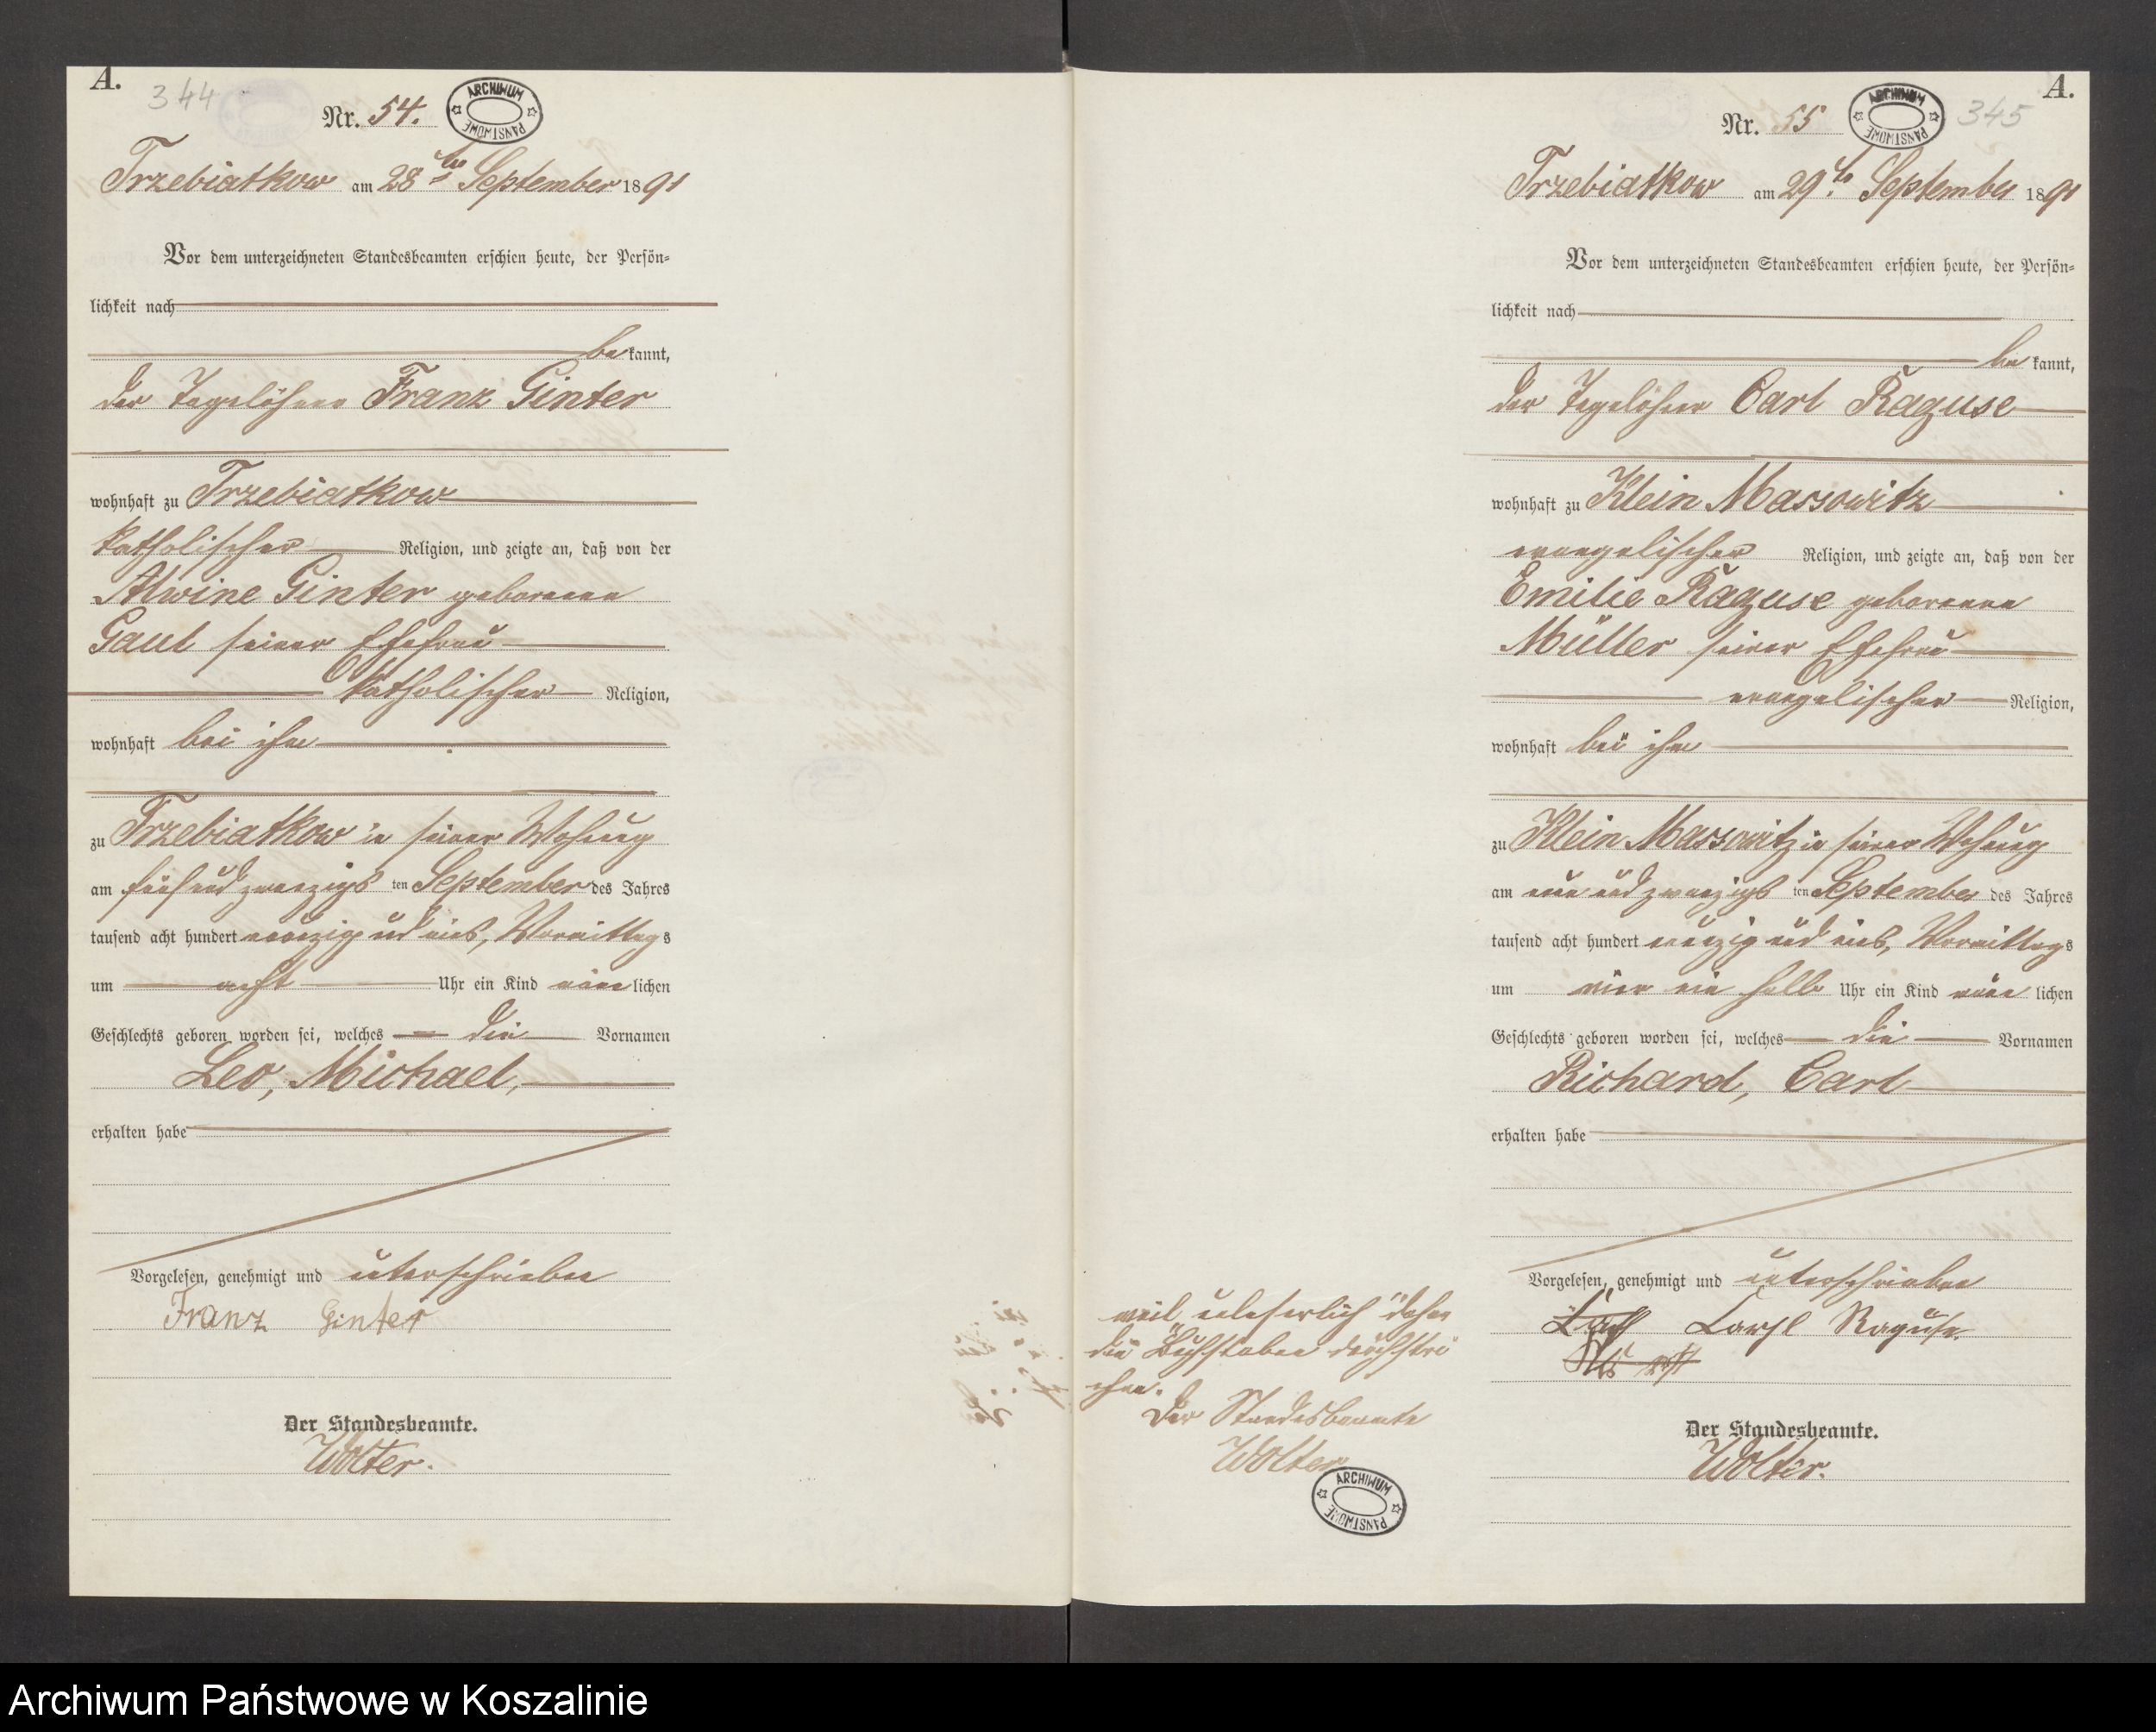 A.
344
Nr. 54.
ARCHIWUM PAŃSTWOWE
Trzebiatkow am 28ten September 1891
Vor dem unterzeichneten Standesbeamten erschien heute, der Persön-
lichkeit nach
be kannt,
der Tagelöhner Franz Ginter
wohnhaft zu Trzebiatkow
katholischer Religion, und zeigte an, daß von der
Alwine Ginter geborenen
Gaul seiner Ehefrau
katholischer Religion,
wohnhaft bei ihm
zu Trzebiatkow in seiner Wohnung
am fünfundzwanzigs ten September des Jahres
tausend acht hundert neunzig und eins, Vormittags
um acht Uhr ein Kind männ lichen
Geschlechts geboren worden sei, welches die Vornamen
Leo, Michael,
erhalten habe
Vorgelesen, genehmigt und unterschrieben
Franz Ginter
Der Standesbeamte.
Wolter.
A.
345
Nr. 55
ARCHIWUM PAŃSTWOWE
Trzebiatkow am 29ten September 1891
Vor dem unterzeichneten Standesbeamten erschien heute, der Persön-
lichkeit nach
be kannt,
der Tagelöhner Carl Raguse
wohnhaft zu Klein Massowitz
evangelischer Religion, und zeigte an, daß von der
Emilie Raguse geborenen
Müller seiner Ehefrau
evangelischer Religion,
wohnhaft bei ihm
zu Klein Massowitz in seiner Wohnung
am neun und zwanzigs ten September des Jahres
tausend acht hundert neunzig und eins, Vormittags
um vier ein halb Uhr ein Kind männ lichen
Geschlechts geboren worden sei, welches die Vornamen
Richard, Carl
erhalten habe
Vorgelesen, genehmigt und unterschrieben
Carl Raguse
weil unleserlich daher
die Buchstaben durchstri
chen.
Der Standesbeamte
Wolter
ARCHIWUM PAŃSTWOWE
Der Standesbeamte.
Wolter.
Archiwum Państwowe w Koszalinie